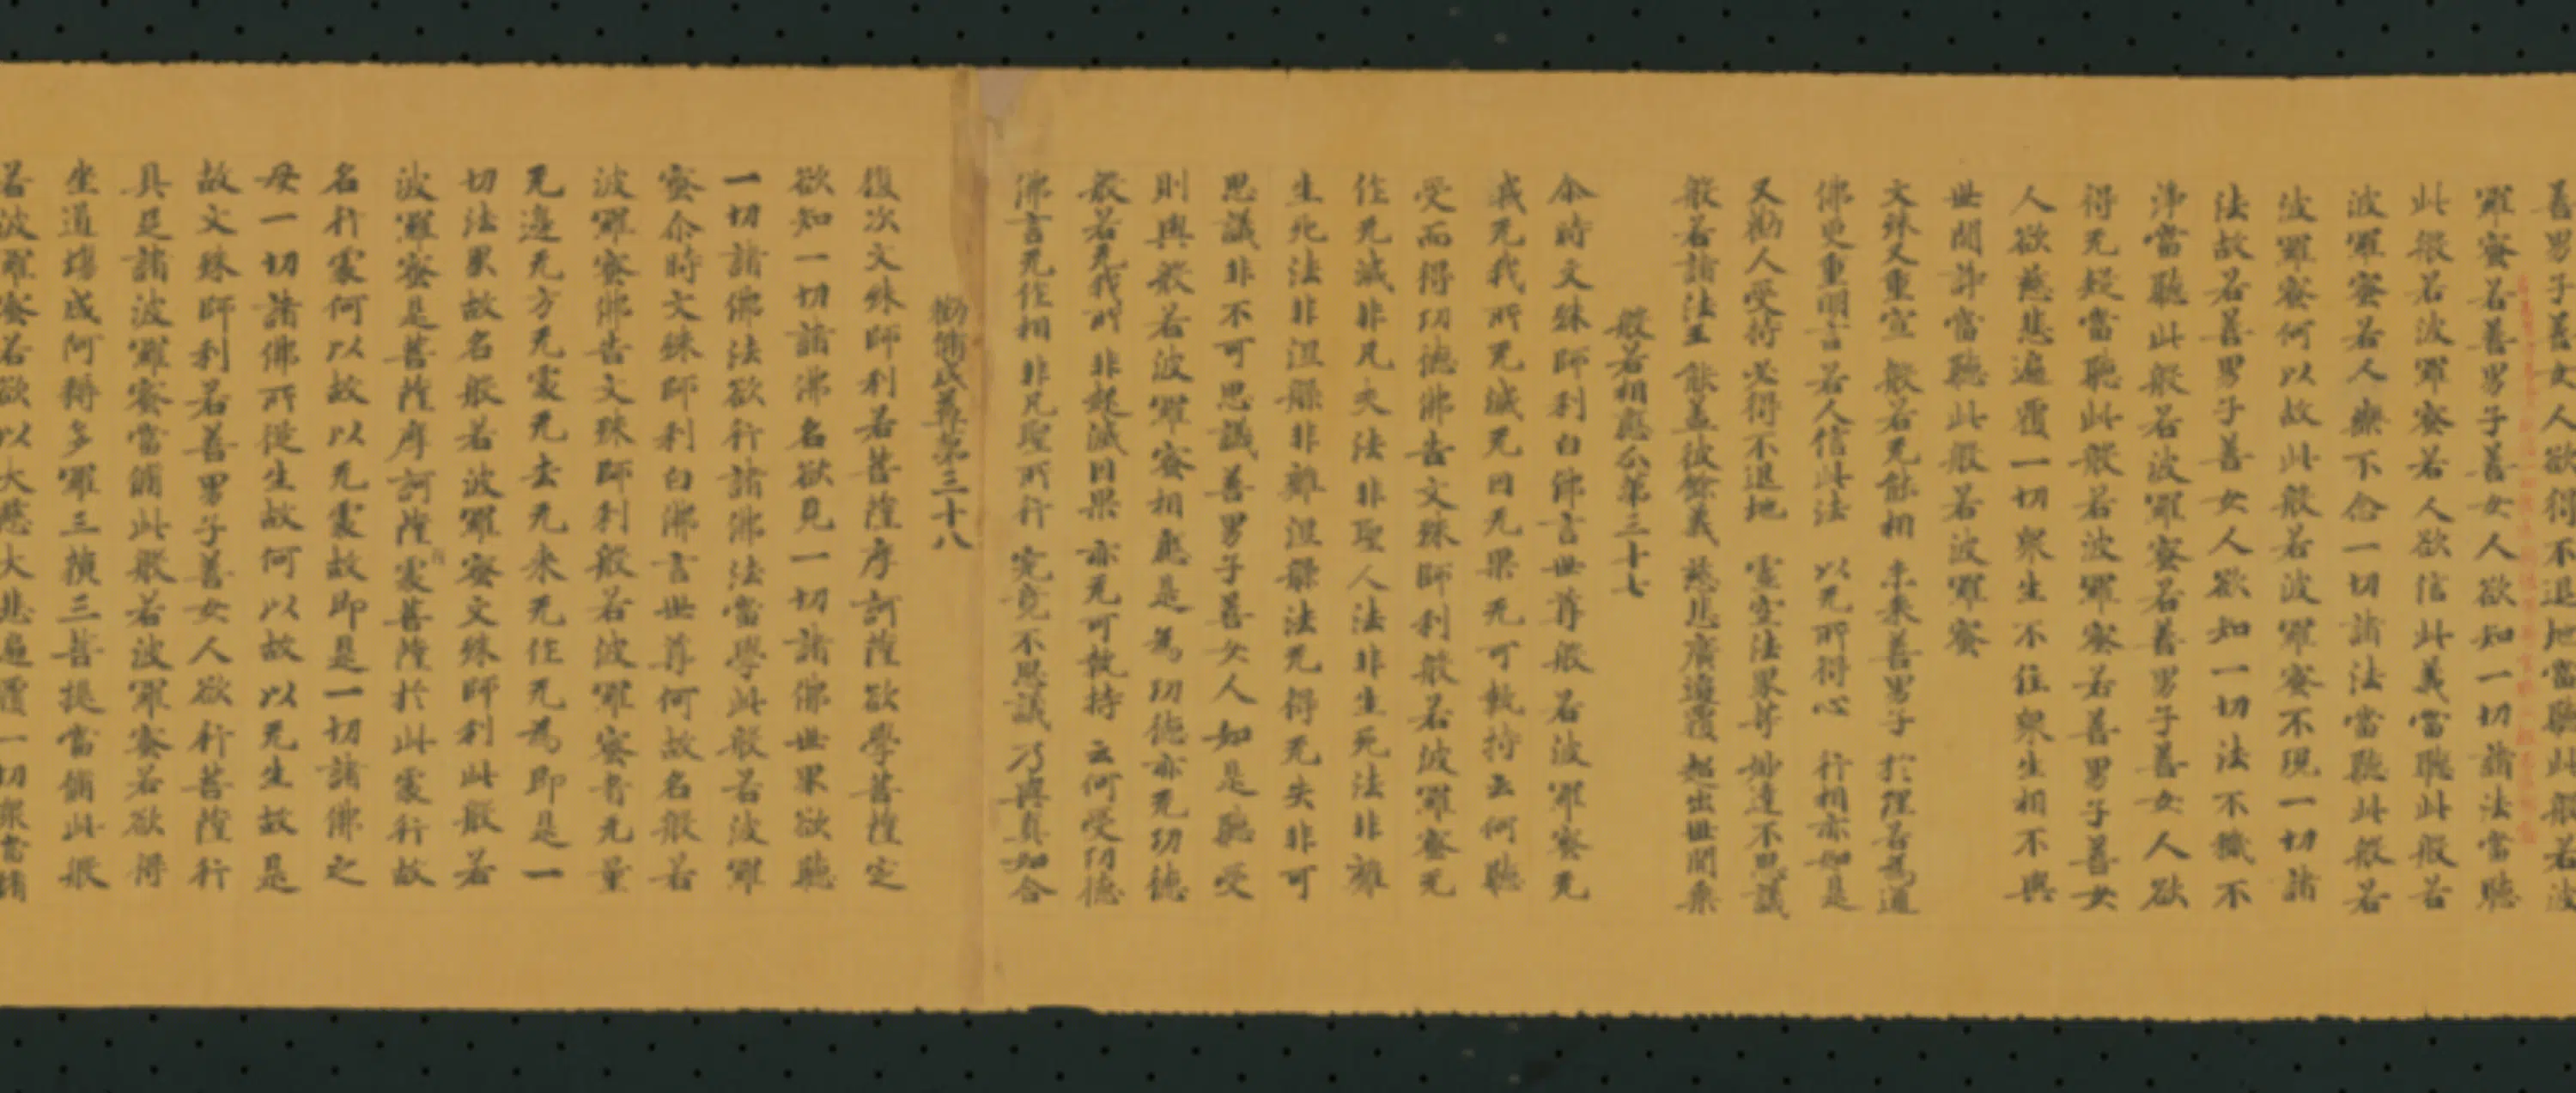 善男子善女人欲得不退地當聽此般若波
羅蜜若善男子善女人欲知一切諸法當聽
此般若波羅蜜若人欲信此義當聽此般若
波羅蜜若人樂下念一切諸法當聽此般若
波羅蜜何以故此般若波羅蜜不現一切諸
法故若善男子善女人欲知一切法不織不
淨當聽此般若波羅蜜若善男子善女人欲
得无疑當聽此般若波羅蜜若善男子善女
人欲慈悲遍覆一切眾生不住眾生相不與
世間諍當聽此般若波羅蜜
文殊又重宣 般若无能相 未来善男子 於理若為道
佛更重明言 若人信此法 以无所得心 行相亦如是
又勸人受持 必得不退地 靈空法界等 妙達不思議
般若諸法王 能盖彼餘義 慈悲廣遍覆 超出世間乘
般若相應分第三十七
尒時文殊師利白佛言世尊般若波羅蜜无
我无我所无滅无因无果无可執持云何聽
受而得功德佛告文殊師利般若波羅蜜无
作无滅非凡夫法非聖人法非生死法非離
生死法非涅槃非離涅槃法无得无失非可
思議非不可思議善男子善女人如是聽受
則與般若波羅蜜相應是為功德亦无功德
般若无我所 非起滅因果 亦无可執持 云何受功德
佛言无作相 非凡聖所行 究竟不思議 乃與真如合
勸脩成尊第三十八
復次文殊師利若菩薩摩訶薩欲學菩薩定
欲知一切諸佛名欲見一切諸佛世界欲聽
一切諸佛法欲行諸佛法當學此般若波羅
蜜尒時文殊師利白佛言世尊何故名般若
波羅蜜佛告文殊師利般若波羅蜜者无量
无邊无方无處无去无来无作无為即是一
切法界故名般若波羅蜜文殊師利此般若
波羅蜜是菩薩摩訶薩處菩薩於此處行故
名行處何以故以无處故即是一切諸佛之
母一切諸佛所從生故何以故以无生故是
故文殊師利若善男子善女人欲行菩薩行
具足諸波羅蜜當脩此般若波羅蜜若欲得
坐道塲成阿耨多羅三藐三菩提當脩此般
若波羅蜜若欲以大慈大悲遍覆一切眾當脩